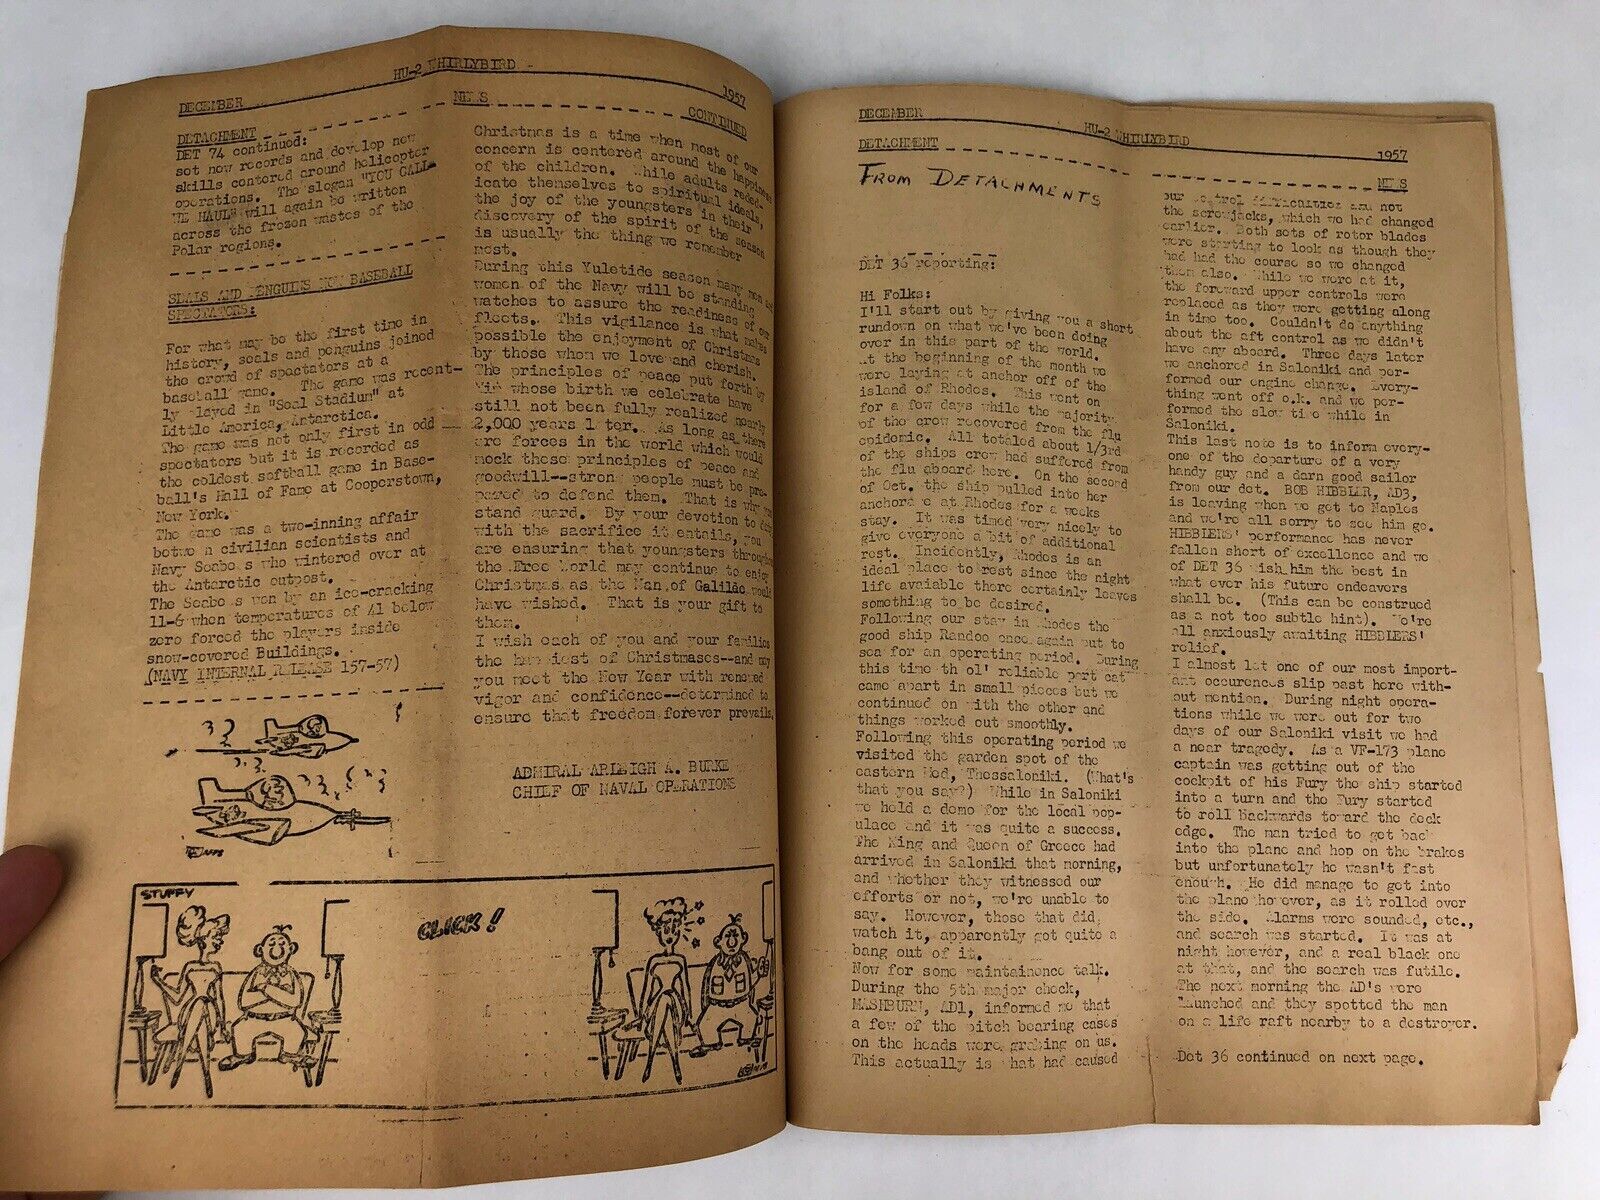 HU-2 WHIRLYBIRD
DECEMBER
1957
DETACHMENT
NEWS
CONTINUED
DET 74 continued:
set new records and develop new
skills centered around helicopter
operations. The slogan "YOU CALL
WE HAUL" will again be written
across the frozen wastes of the
Polar regions.
SEALS AND PENGUINS NOW BASEBALL
SPECTATORS:
For what may be the first time in
history, seals and penguins joined
the crowd of spectators at a
baseball game. The game was recent-
ly played in "Seal Stadium" at
Little America, Antarctica.
The game was not only first in odd
spectators but it is recorded as
the coldest softball game in Base-
ball's Hall of Fame at Cooperstown,
New York.
The game was a two-inning affair
between civilian scientists and
Navy Seabees who wintered over at
the Antarctic outpost.
The Seabees won by an ice-cracking
11-6 when temperatures of 41 below
zero forced the players inside
snow-covered Buildings.
(NAVY INTERNAL RELEASE 157-57)
AFPS
Christmas is a time when most of our
concern is centered around the happiness
of the children. While adults reded-
icate themselves to spiritual ideals,
the joy of the youngsters in their
discovery of the spirit of the season
is usually the thing we remember
most.
During this Yuletide season many men and
women of the Navy will be standing
watches to assure the readiness of our
fleets. This vigilance is what makes
possible the enjoyment of Christmas
by those whom we love and cherish.
The principles of peace put forth by
Him whose birth we celebrate have
still not been fully realized nearly
2,000 years later. As long as there
are forces in the world which would
mock these principles of peace and
goodwill--strong people must be pre-
pared to defend them. That is why you
stand guard. By your devotion to duty
with the sacrifice it entails, you
are ensuring that youngsters throughout
the Free World may continue to enjoy
Christmas as the Man of Galilee would
have wished. That is your gift to
them.
I wish each of you and your families
the happiest of Christmases--and may
you meet the New Year with renewed
vigor and confidence--determined to
ensure that freedom forever prevails.
ADMIRAL ARLEIGH A. BURKE
CHIEF OF NAVAL OPERATIONS
STUFFY
CLICK!
DECEMBER
HU-2 WHIRLYBIRD
1957
DETACHMENT
NEWS
FROM DETACHMENTS
DET 36 reporting:
Hi Folks:
I'll start out by giving you a short
rundown on what we've been doing
over in this part of the world.
At the beginning of the month we
were laying at anchor off of the
island of Rhodes. This went on
for a few days while the majority
of the crew recovered from the flu
epidemic. All totaled about 1/3rd
of the ships crew had suffered from
the flu aboard here. On the second
of Oct. the ship pulled into her
anchorage at Rhodes for a weeks
stay. It was timed very nicely to
give everyone a bit of additional
rest. Incidently, Rhodes is an
ideal place to rest since the night
life avaiable there certainly leaves
something to be desired.
Following our stay in Rhodes the
good ship Randoo once again put to
sea for an operating period. During
this time th ol' reliable port cat
came apart in small pieces but we
continued on with the other and
things worked out smoothly.
Following this operating period we
visited the garden spot of the
eastern Med, Thessaloniki. (What's
that you say?) While in Saloniki
we held a demo for the local pop-
ulace and it was quite a success.
The King and Queen of Greece had
arrived in Saloniki that morning,
and whether they witnessed our
efforts or not, we're unable to
say. However, those that did,
watch it, apparently got quite a
bang out of it.
Now for some maintainence talk.
During the 5th major check,
MASHBURN, AD1, informed me that
a few of the pitch bearing cases
on the heads were grabing on us.
This actually is what had caused
our control difficulties and not
the screwjacks, which we had changed
earlier. Both sets of rotor blades
were starting to look as though they
had had the course so we changed
them also. While we were at it,
the foreward upper controls were
replaced as they were getting along
in time too. Couldn't do anything
about the aft control as we didn't
have any aboard. Three days later
we anchored in Saloniki and per-
formed our engine change. Every-
thing went off o.k. and we per-
formed the slow time while in
Saloniki.
This last note is to inform every-
one of the departure of a very
handy guy and a darn good sailor
from our det. BOB HIBBLER, AD3,
is leaving when we get to Naples
and we're all sorry to see him go.
HIBBLERS' performance has never
fallen short of excellence and we
of DET 36 wish him the best in
what ever his future endeavers
shall be. (This can be construed
as a not too subtle hint). We're
all anxiously awaiting HIBBLERS'
relief.
I almost let one of our most import-
ant occurences slip past here with-
out mention. During night opera-
tions while we were out for two
days of our Saloniki visit we had
a near tragedy. As a VF-173 plane
captain was getting out of the
cockpit of his Fury the ship started
into a turn and the Fury started
to roll backwards toward the deck
edge. The man tried to get back
into the plane and hop on the brakes
but unfortunately he wasn't fast
enough. He did manage to get into
the plane however, as it rolled over
the side. Alarms were sounded, etc.,
and search was started. It was at
night however, and a real black one
at that, and the search was futile.
The next morning the AD's were
launched and they spotted the man
on a life raft nearby to a destroyer.
Det 36 continued on next page.